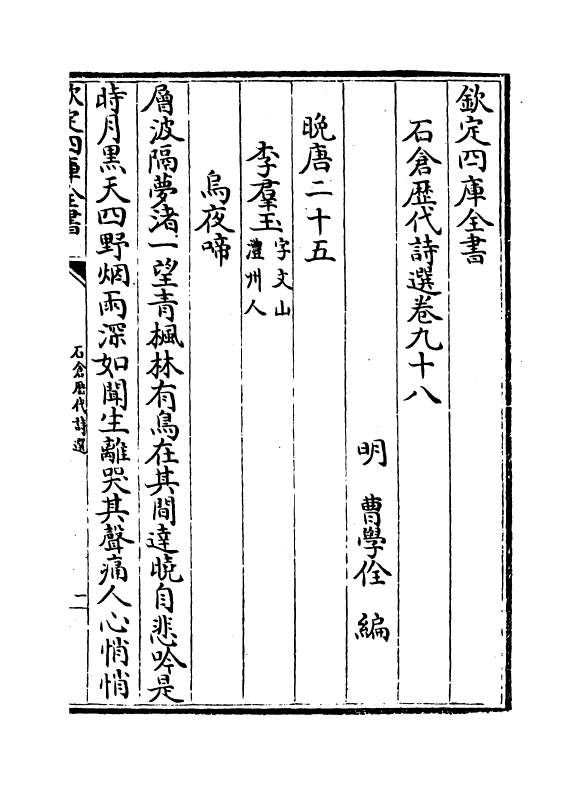 欽定四庫全書
石倉歴代詩選卷九十八
明 曹學佺 編
晚唐二十五
李羣玉 字文山 澧州人
烏夜啼
層波隔夢渚一望青楓林有鳥在其間達曉自悲吟是
時月黑天四野烟雨深如聞生離哭其聲痛人心悄悄
欽定四庫全書 石倉歴代詩選 二